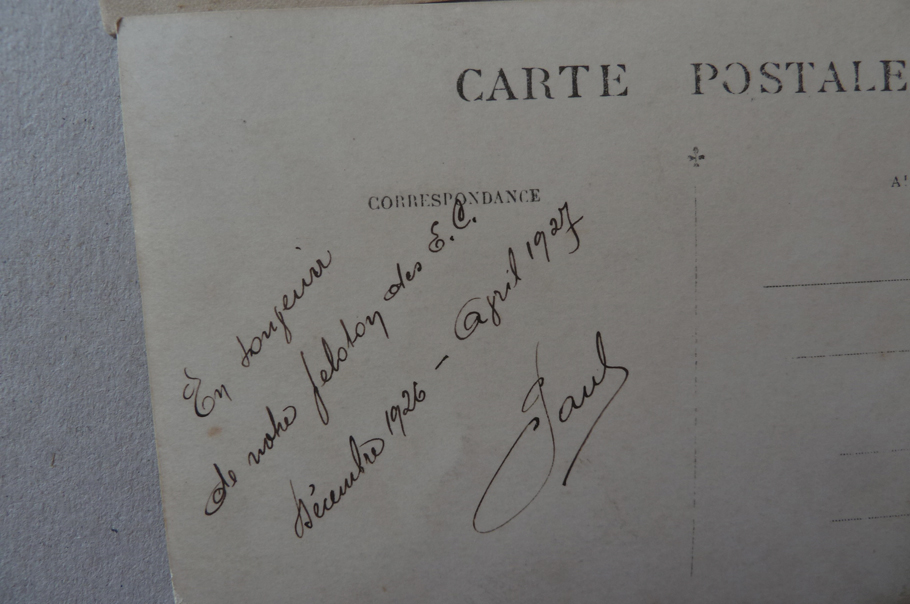 CARTE POSTALE
CORRESPONDANCE
En
de notre peloton des E.C.
Décembre 1926 - April 1927
Paul